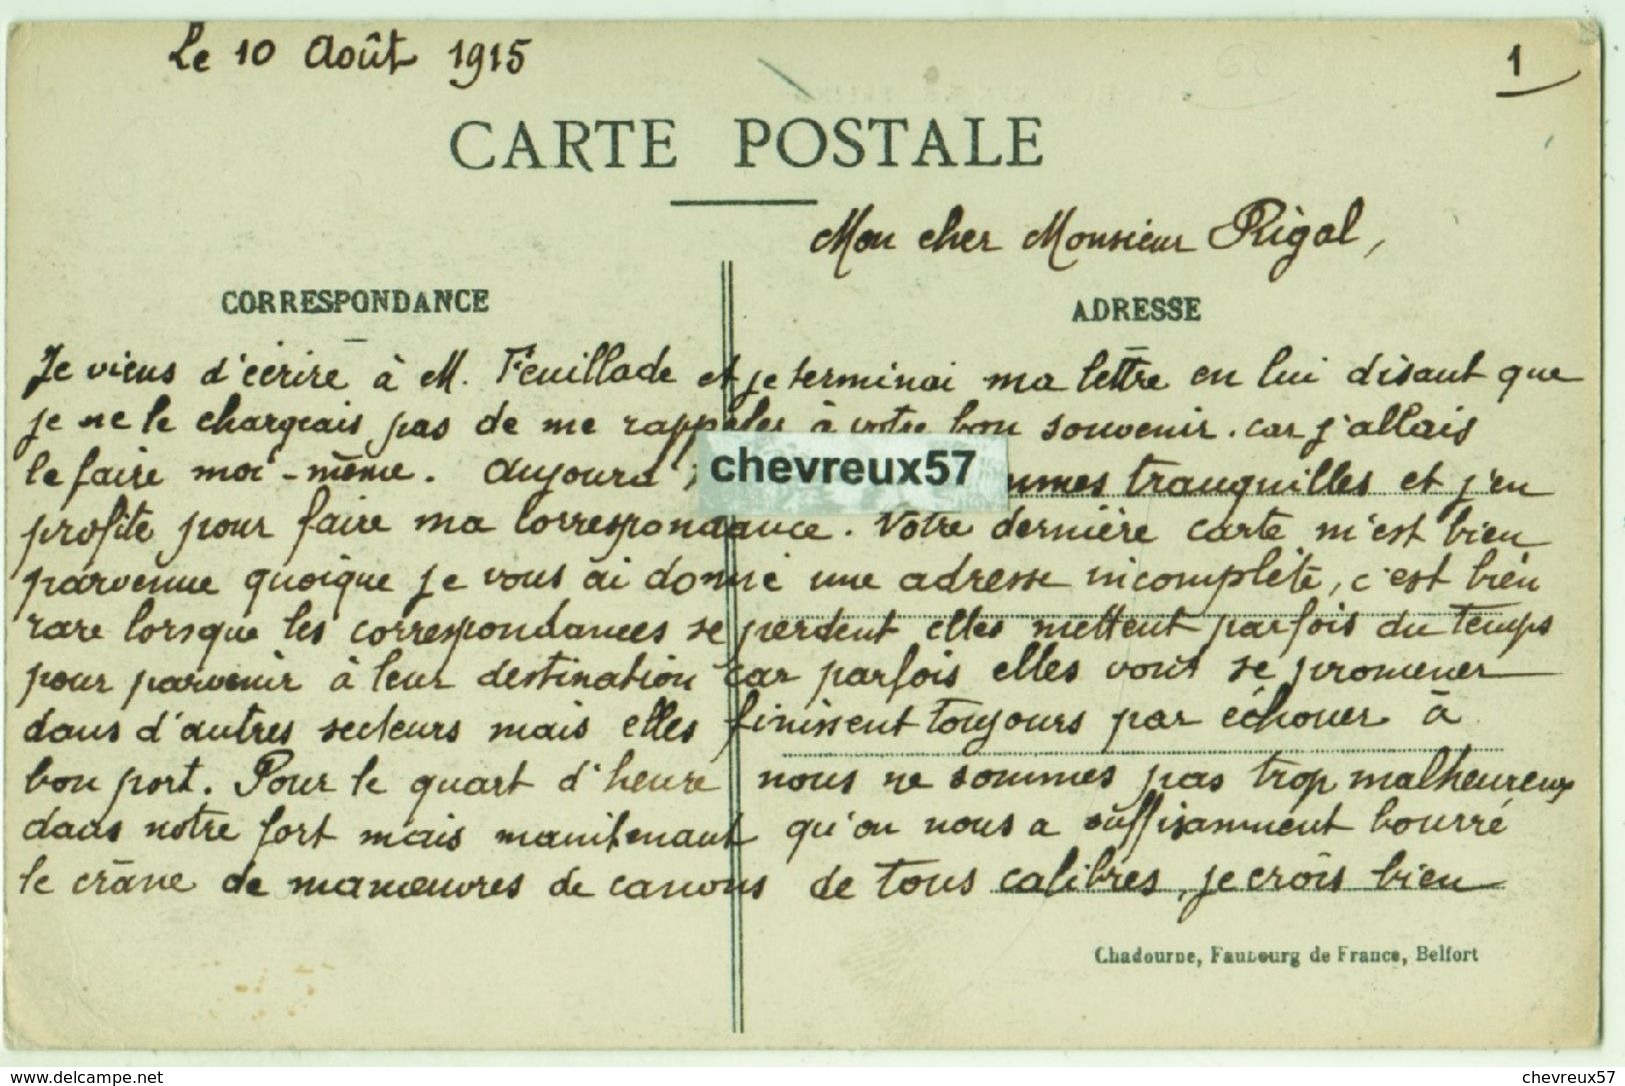 Le 10 Août 1915
1
CARTE POSTALE
Mon cher Monsieur Rigal,
CORRESPONDANCE
ADRESSE
Je viens d'écrire à M. Feuillade et je terminai ma lettre en lui disant que
je ne le chargeais pas de me rappeler à votre bon souvenir. car j'allais
le faire moi-même. Aujourd' tranquilles et j'en
chevreux57
profite pour faire ma correspondance. Votre dernière carte m'est bien
parvenue quoique je vous ai donné une adresse incomplète, c'est bien
rare lorsque les correspondances se perdent elles mettent parfois du temps
pour parvenir à leur destination car parfois elles vont se promener
dans d'autres secteurs mais elles finissent toujours par échouer à
bon port. Pour le quart d'heure nous ne sommes pas trop malheureux
dans notre fort mais maintenant qu'on nous a suffisamment bourré
le crâne de manœuvres de canons de tous calibres, je crois bien
Chadourne, Faubourg de France, Belfort
www.delcampe.net
chevreux57